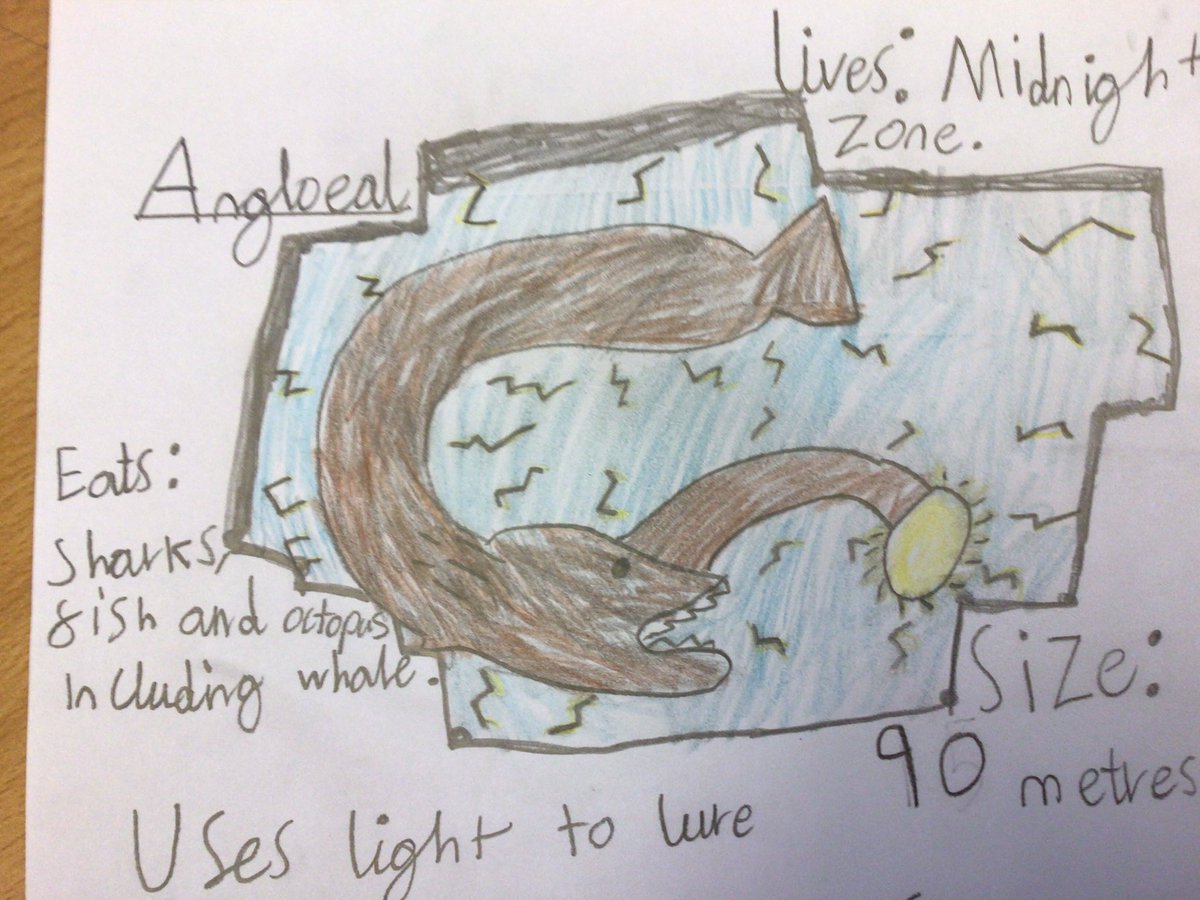 Lives: Midnight
zone.
Angloeal
Eats:
Sharks,
fish and octopus
including whale.
Size:
90 metres
Uses light to lure